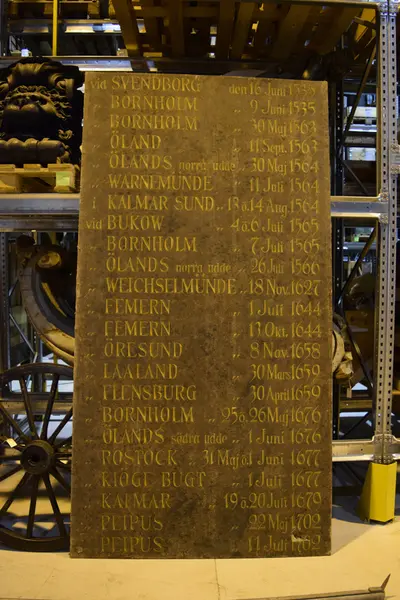 vid SVENDBORG den 16 Juni 1535
„ BORNHOLM „ 9 Juni 1535
„ BORNHOLM „ 30 Maj 1563
„ ÖLAND „ 11 Sept. 1563
„ ÖLANDS norra udde „ 30 Maj 1564
„ WARNEMÜNDE „ 11 Juli 1564
i KALMAR SUND „ 13 à 14 Aug. 1564
vid BUKOW „ 4 à 6 Juli 1565
„ BORNHOLM „ 7 Juli 1565
„ ÖLANDS norra udde „ 26 Juli 1566
„ WEICHSELMÜNDE „ 18 Nov. 1627
„ FEMERN „ 1 Juli 1644
„ FEMERN „ 13 Okt. 1644
„ ÖRESUND „ 8 Nov. 1658
„ LAALAND „ 30 Mars 1659
„ FLENSBURG „ 30 April 1659
„ BORNHOLM „ 25 à 26 Maj 1676
„ ÖLANDS södra udde „ 1 Juni 1676
„ ROSTOCK „ 31 Maj à 1 Juni 1677
„ KIÖGE BUGT „ 1 Juli 1677
„ KALMAR „ 19 à 20 Juli 1679
„ PEIPUS „ 22 Maj 1702
„ PEIPUS „ 11 Juli 1702